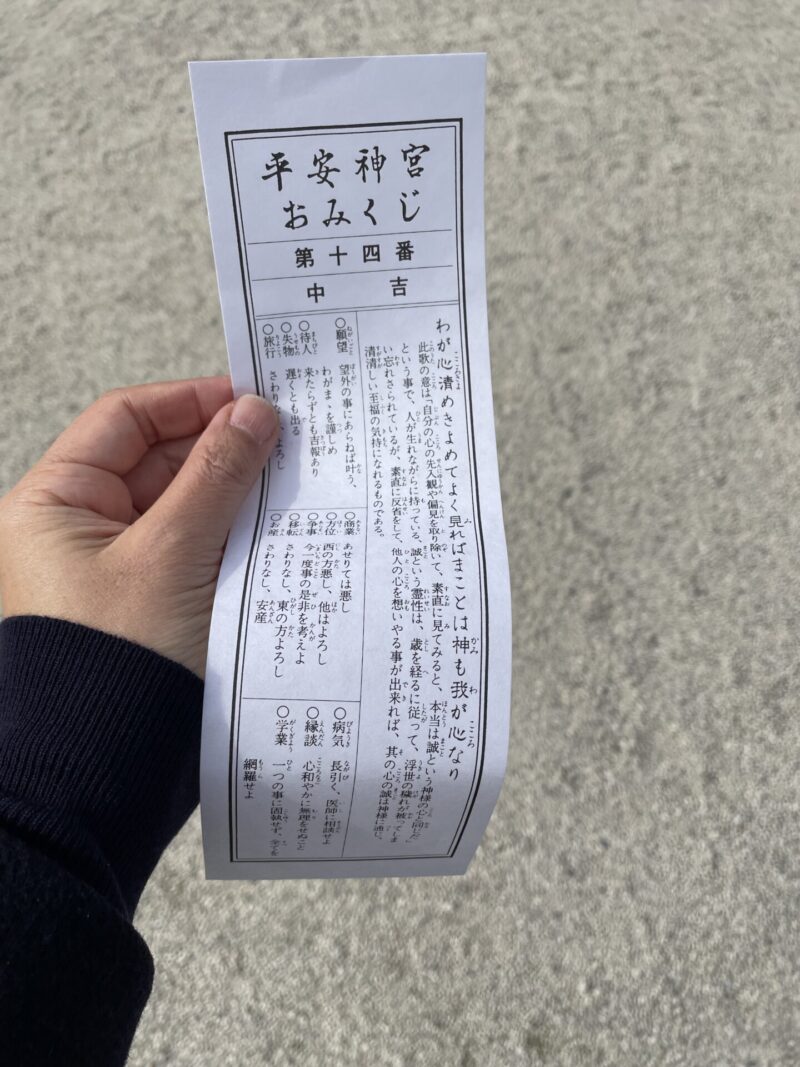 平安神宮
おみくじ
第十四番
中吉
わが心清めきよめてよく見ればまことは神も我が心なり
此歌の意は「自分の心の先入観や偏見を取り除いて、素直に見てみると、本当は誠という神様の心と同じだ」
という事で、人が生れながらに持っている、誠という霊性は、歳を経るに従って、浮世の穢れが被ってしま
い忘れさられているが、素直に反省をして、他人の心を想いやる事が出来れば、其の心の誠は神様に通じ、
清清しい至福の気持になれるものである。
○願望 望外の事にあらねば叶う、
わがまゝを謹しめ
○待人 来たらずとも吉報あり
○失物 遅くとも出る
○旅行 さわりなし、よろし
○商業 あせりては悪し
○方位 西の方悪し、他はよろし
○争事 今一度事の是非を考えよ
○移転 さわりなし、東の方よろし
○お産 さわりなし、安産
○病気 長引く、医師に相談せよ
○縁談 心和やかに無理をせぬこと
○学業 一つの事に固執せず、全てを
網羅せよ